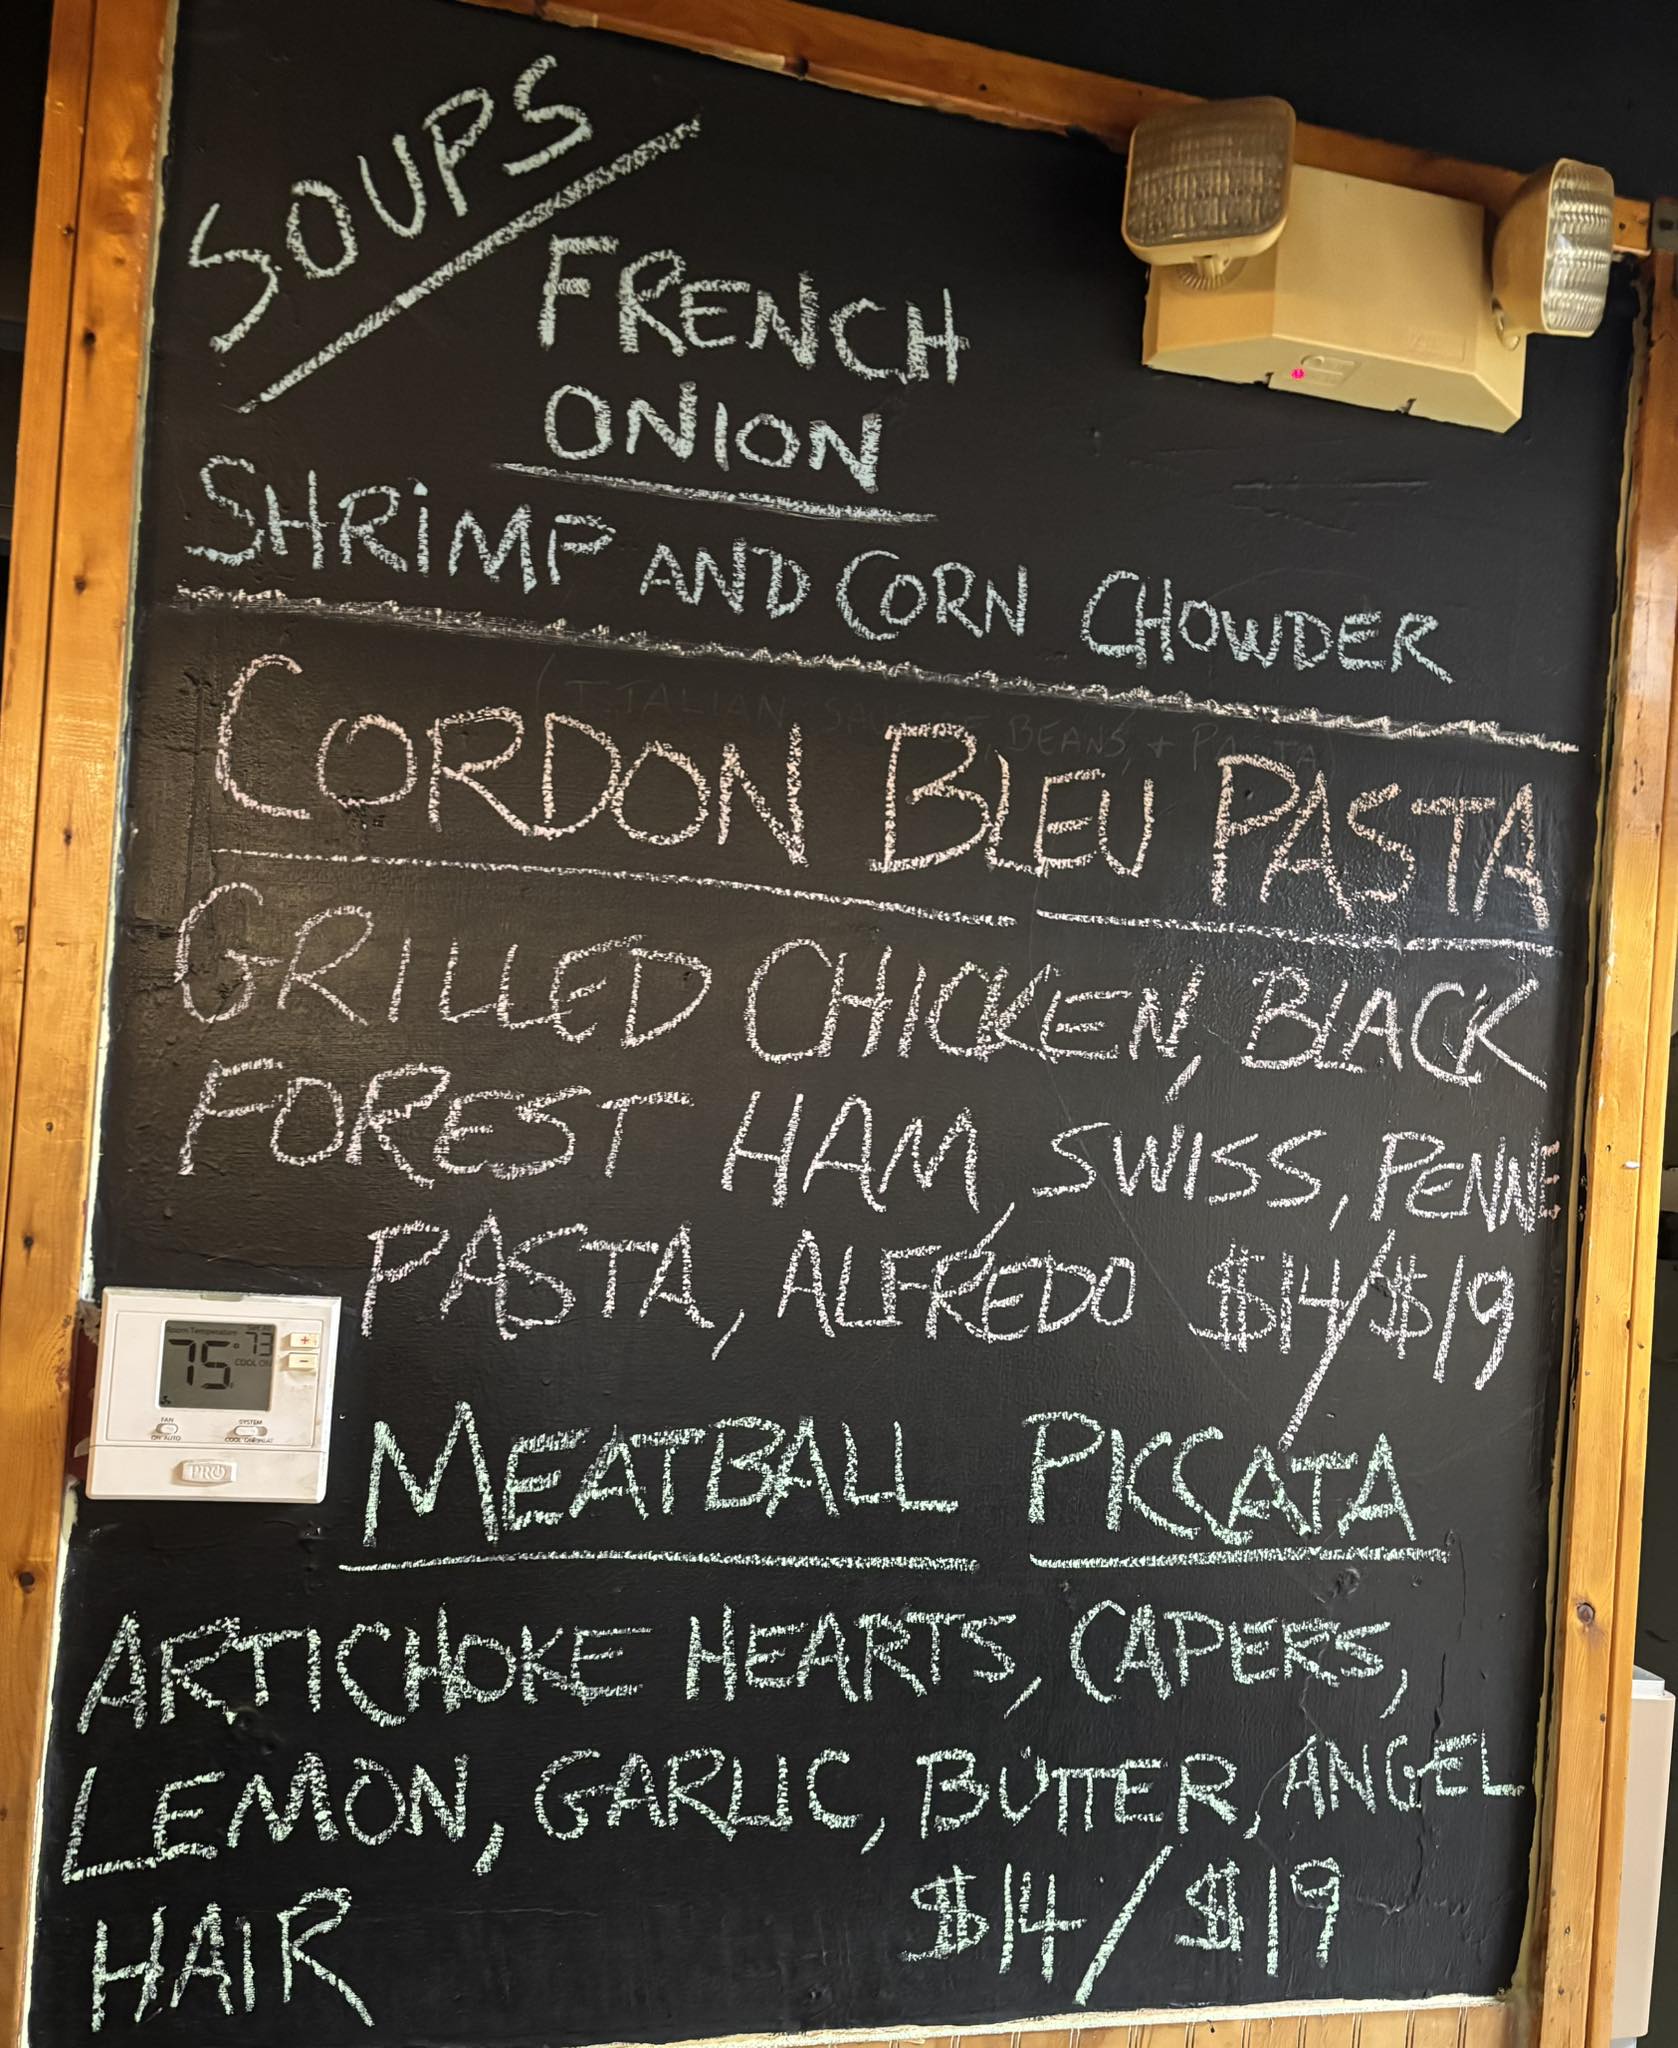 SOUPS
FRENCH
ONION
SHRIMP AND CORN CHOWDER
(ITALIAN SAUSAGE, BEANS, + PASTA)
CORDON BLEU PASTA
GRILLED CHICKEN, BLACK
FOREST HAM, SWISS, PENNE
PASTA, ALFREDO $14/$19
Room Temperature
75° 73
COOL ON
+
-
FAN
ON AUTO
SYSTEM
COOL OFF HEAT
PRO
MEATBALL PICCATA
ARTICHOKE HEARTS, CAPERS,
LEMON, GARLIC, BUTTER, ANGEL
HAIR $14/$19